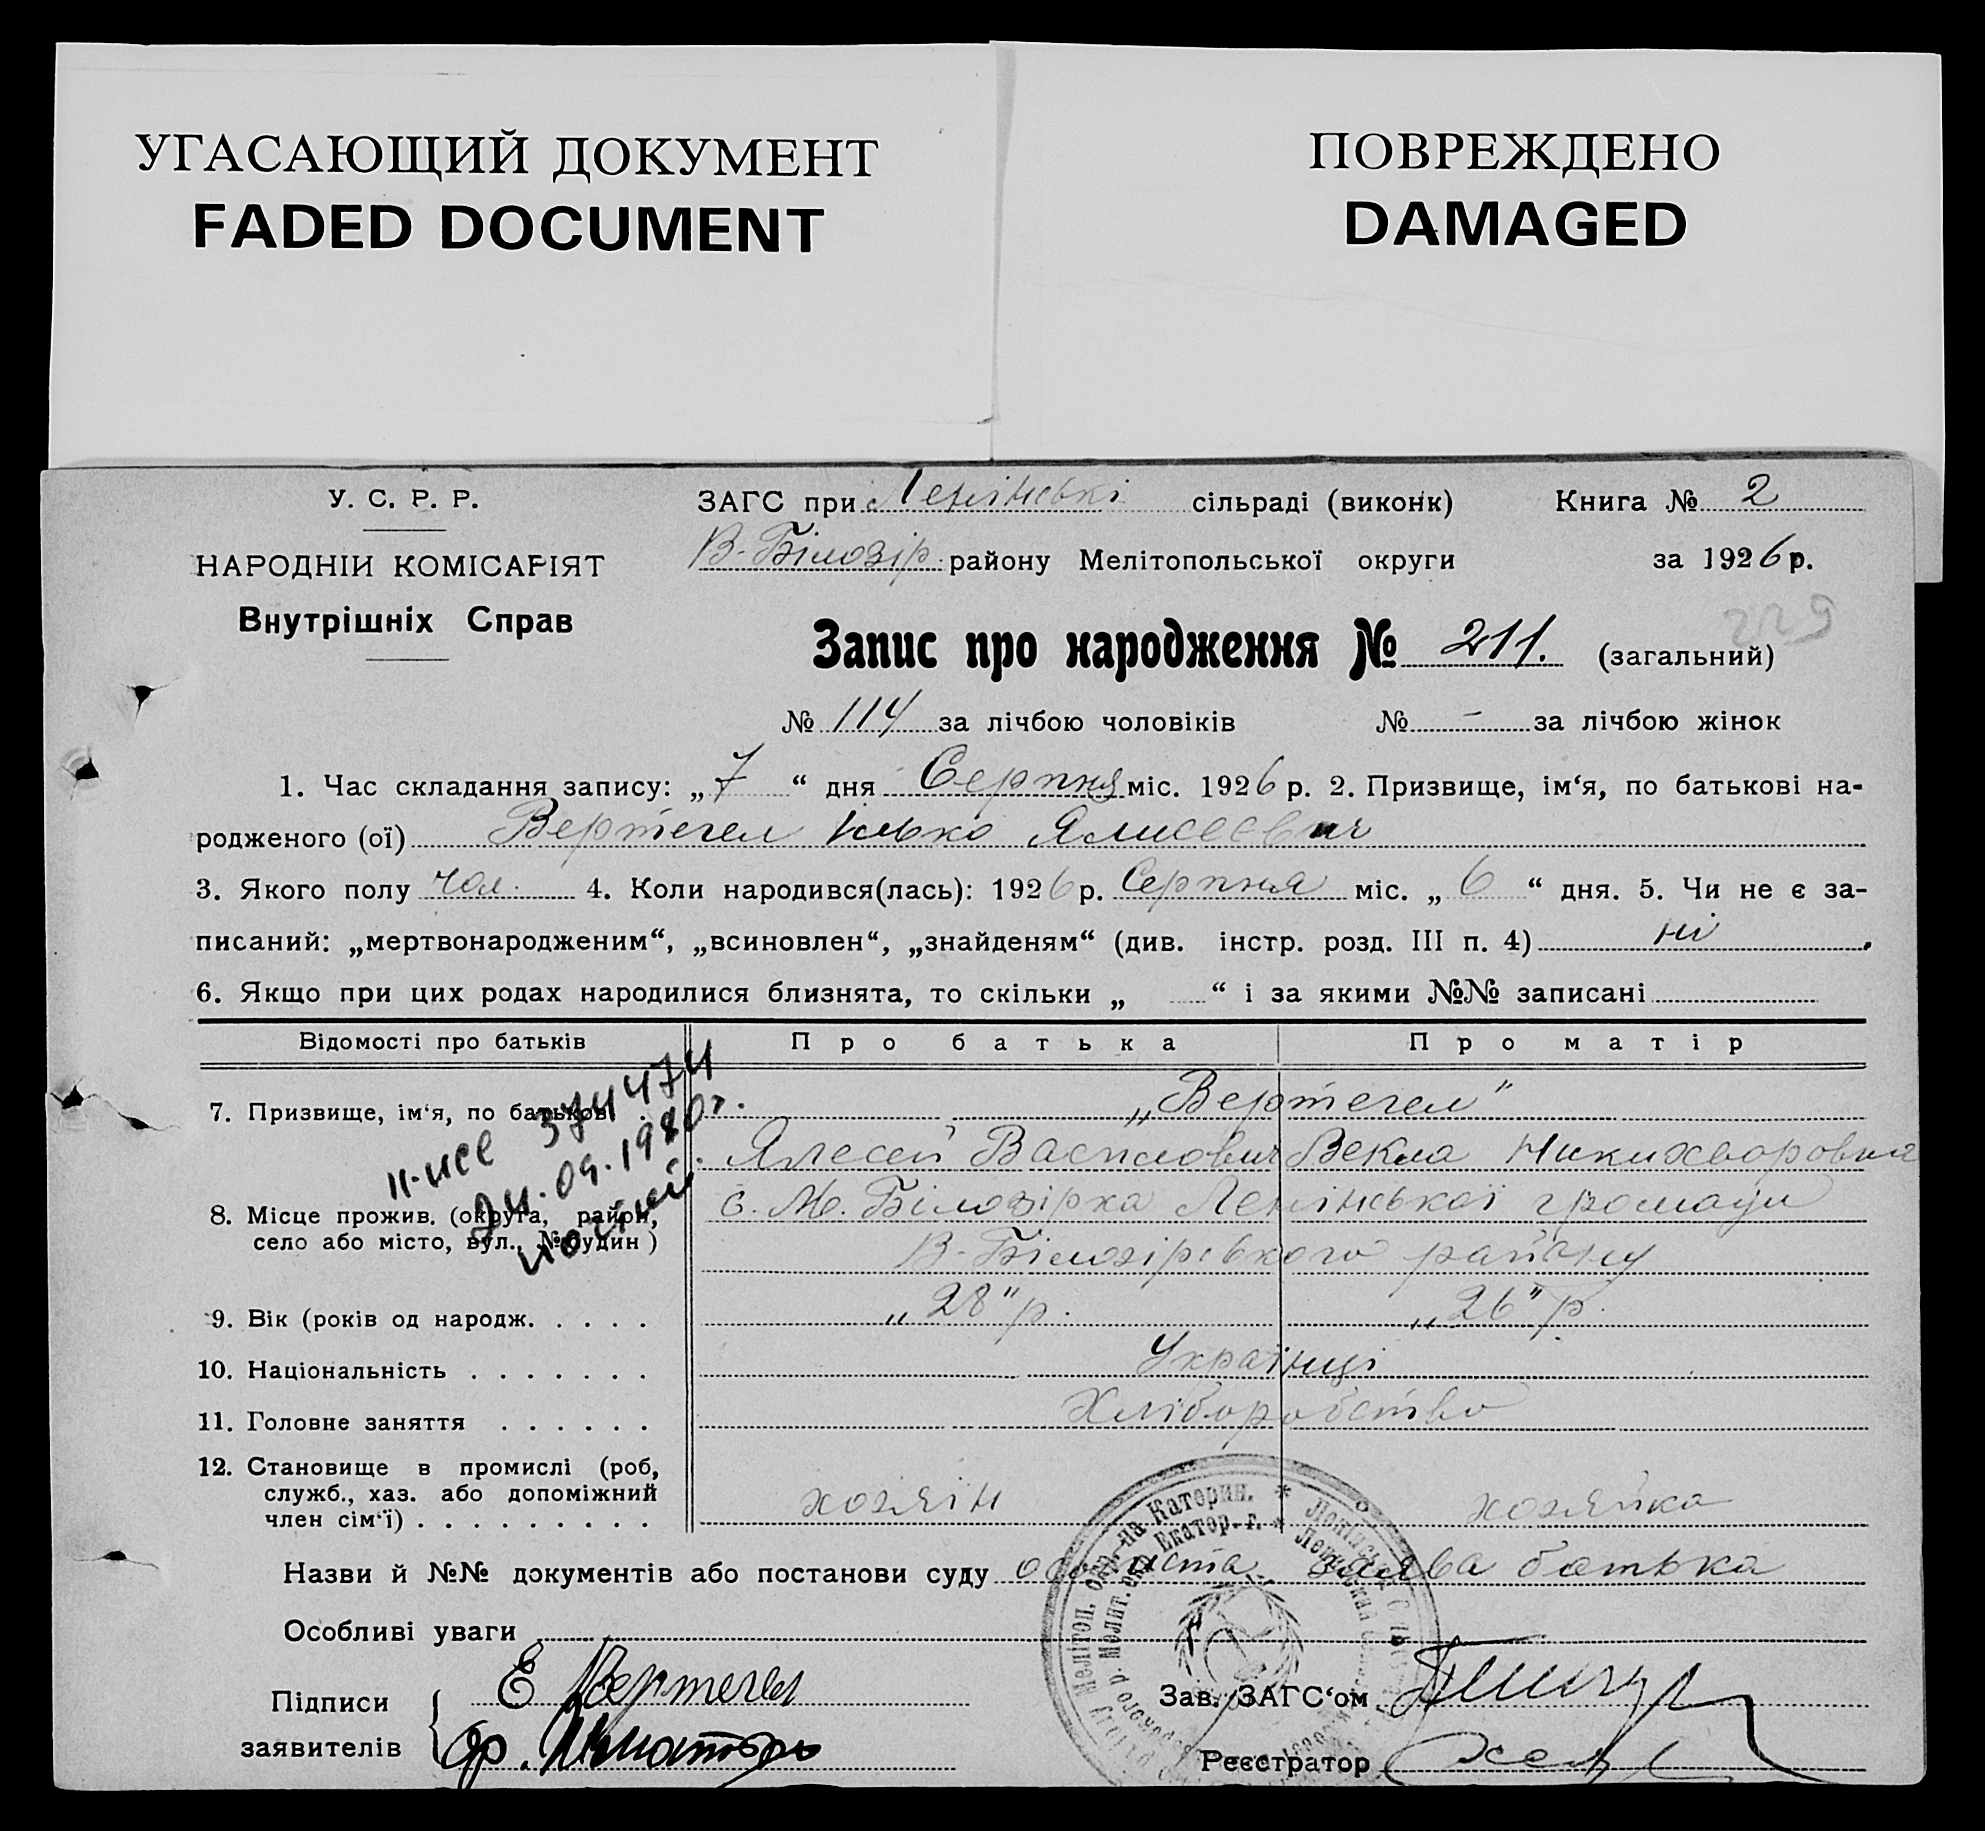 УГАСАЮЩИЙ ДОКУМЕНТ
FADED DOCUMENT
ПОВРЕЖДЕНО
DAMAGED
У. С. Р. Р.
НАРОДНІИ КОМІСАРІЯТ
Внутрішніх Справ
ЗАГС при Ленінські сільраді (виконк) Книга № 2
В-Білозір. району Мелітопольської округи за 1926 р.
229
Запис про народження № 211. (загальний)
№ 114 за лічбою чоловіків № - за лічбою жінок
1. Час складання запису: „7“ дня Серпня міс. 1926 р. 2. Призвище, ім‘я, по батькові на-
родженого (ої) Вертегел Ілько Ялисеєвич
3. Якого полу чол. 4. Коли народився(лась): 1926 р. Серпня міс. „6“ дня. 5. Чи не є за-
писаний: „мертвонародженим“, „всиновлен“, „знайденям“ (див. інстр. розд. III п. 4) ні.
6. Якщо при цих родах народилися близнята, то скільки „ “ і за якими №№ записані
Відомості про батьків Про батька Про матір
7. Призвище, ім‘я, по батькові . „Вертегел"
Ялесей Василович Векла Никихворовна
8. Місце прожив. (округа, район, село або місто, вул., № будин) с. М. Білозірка Ленінської громади
В-Білозірського району
374474
24.09.1980г.
9. Вік (років од народж. . . . . „28" р. „26" р.
10. Національність . . . . . . . Українці
11. Головне заняття . . . . . . Хліборобство
12. Становище в промислі (роб,
служб., хаз. або допоміжний
член сім‘ї) . . . . . . . . . хозяін хозяйка
Назви й №№ документів або постанови суду особиста заява батька
Особливі уваги
Підписи
заявителів
Е Вертегел
Зав. ЗАГС‘ом
Реєстратор